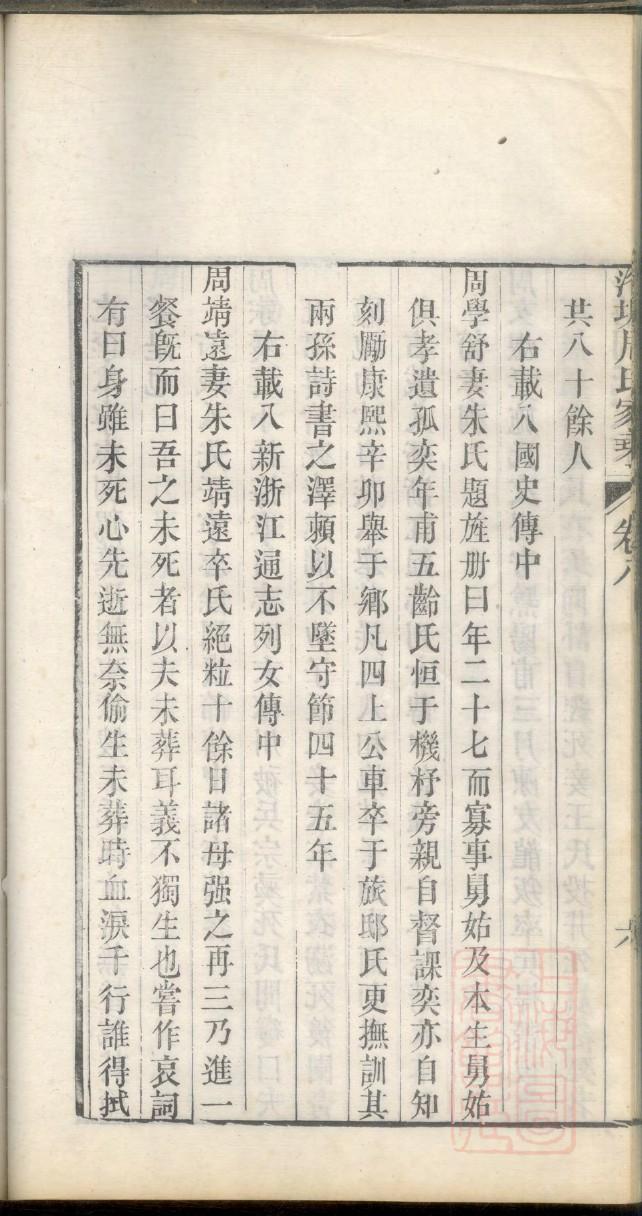 周氏家乘 卷八
共八十餘人
右載入國史傳中
周學舒妻朱氏題旌册曰年二十七而寡事舅姑及本生舅姑
俱孝遺孤奕年甫五齡氏恒于機杼旁親自督課奕亦自知
刻勵康熙辛卯舉于鄉凡四上公車卒于旅邸氏更撫訓其
兩孫詩書之澤賴以不墜守節四十五年
右載入新浙江通志列女傳中
周靖遠妻朱氏靖遠卒氏絕粒十餘日諸母强之再三乃進一
餐旣而曰吾之未死者以夫未葬耳義不獨生也嘗作哀詞
有曰身雖未死心先逝無奈偷生未葬時血淚千行誰得拭